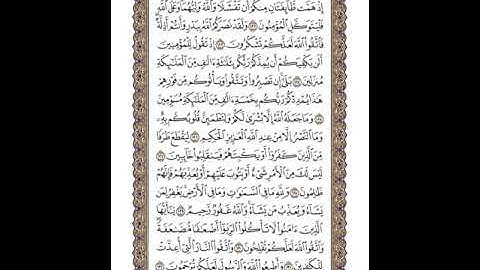 إِذْ هَمَّت طَّآئِفَتَانِ مِنكُمْ أَن تَفْشَلَا وَٱللَّهُ وَلِيُّهُمَا وَعَلَى ٱللَّهِ
فَلْيَتَوَكَّلِ ٱلْمُؤْمِنُونَ ١٢٢ وَلَقَدْ نَصَرَكُمُ ٱللَّهُ بِبَدْرٍ وَأَنتُمْ أَذِلَّةٌ
فَٱتَّقُوا۟ ٱللَّهَ لَعَلَّكُمْ تَشْكُرُونَ ١٢٣ إِذْ تَقُولُ لِلْمُؤْمِنِينَ
أَلَن يَكْفِيَكُمْ أَن يُمِدَّكُمْ رَبُّكُم بِثَلَٰثَةِ ءَالَٰفٍ مِّنَ ٱلْمَلَٰٓئِكَةِ
مُنزَلِينَ ١٢٤ بَلَىٰٓ إِن تَصْبِرُوا۟ وَتَتَّقُوا۟ وَيَأْتُوكُم مِّن فَوْرِهِمْ
هَٰذَا يُمْدِدْكُمْ رَبُّكُم بِخَمْسَةِ ءَالَٰفٍ مِّنَ ٱلْمَلَٰٓئِكَةِ مُسَوِّمِينَ
١٢٥ وَمَا جَعَلَهُ ٱللَّهُ إِلَّا بُشْرَىٰ لَكُمْ وَلِتَطْمَئِنَّ قُلُوبُكُم بِهِۦ
وَمَا ٱلنَّصْرُ إِلَّا مِنْ عِندِ ٱللَّهِ ٱلْعَزِيزِ ٱلْحَكِيمِ ١٢٦ لِيَقْطَعَ طَرَفًا
مِّنَ ٱلَّذِينَ كَفَرُوٓا۟ أَوْ يَكْبِتَهُمْ فَيَنقَلِبُوا۟ خَآئِبِينَ ١٢٧
لَيْسَ لَكَ مِنَ ٱلْأَمْرِ شَىْءٌ أَوْ يَتُوبَ عَلَيْهِمْ أَوْ يُعَذِّبَهُمْ فَإِنَّهُمْ
ظَٰلِمُونَ ١٢٨ وَلِلَّهِ مَا فِى ٱلسَّمَٰوَٰتِ وَمَا فِى ٱلْأَرْضِ يَغْفِرُ لِمَن
يَشَآءُ وَيُعَذِّبُ مَن يَشَآءُ وَٱللَّهُ غَفُورٌ رَّحِيمٌ ١٢٩ يَٰٓأَيُّهَا
ٱلَّذِينَ ءَامَنُوا۟ لَا تَأْكُلُوا۟ ٱلرِّبَوٰٓا۟ أَضْعَٰفًا مُّضَٰعَفَةً
وَٱتَّقُوا۟ ٱللَّهَ لَعَلَّكُمْ تُفْلِحُونَ ١٣٠ وَٱتَّقُوا۟ ٱلنَّارَ ٱلَّتِىٓ أُعِدَّتْ
لِلْكَٰفِرِينَ ١٣١ وَأَطِيعُوا۟ ٱللَّهَ وَٱلرَّسُولَ لَعَلَّكُمْ تُرْحَمُونَ ١٣٢